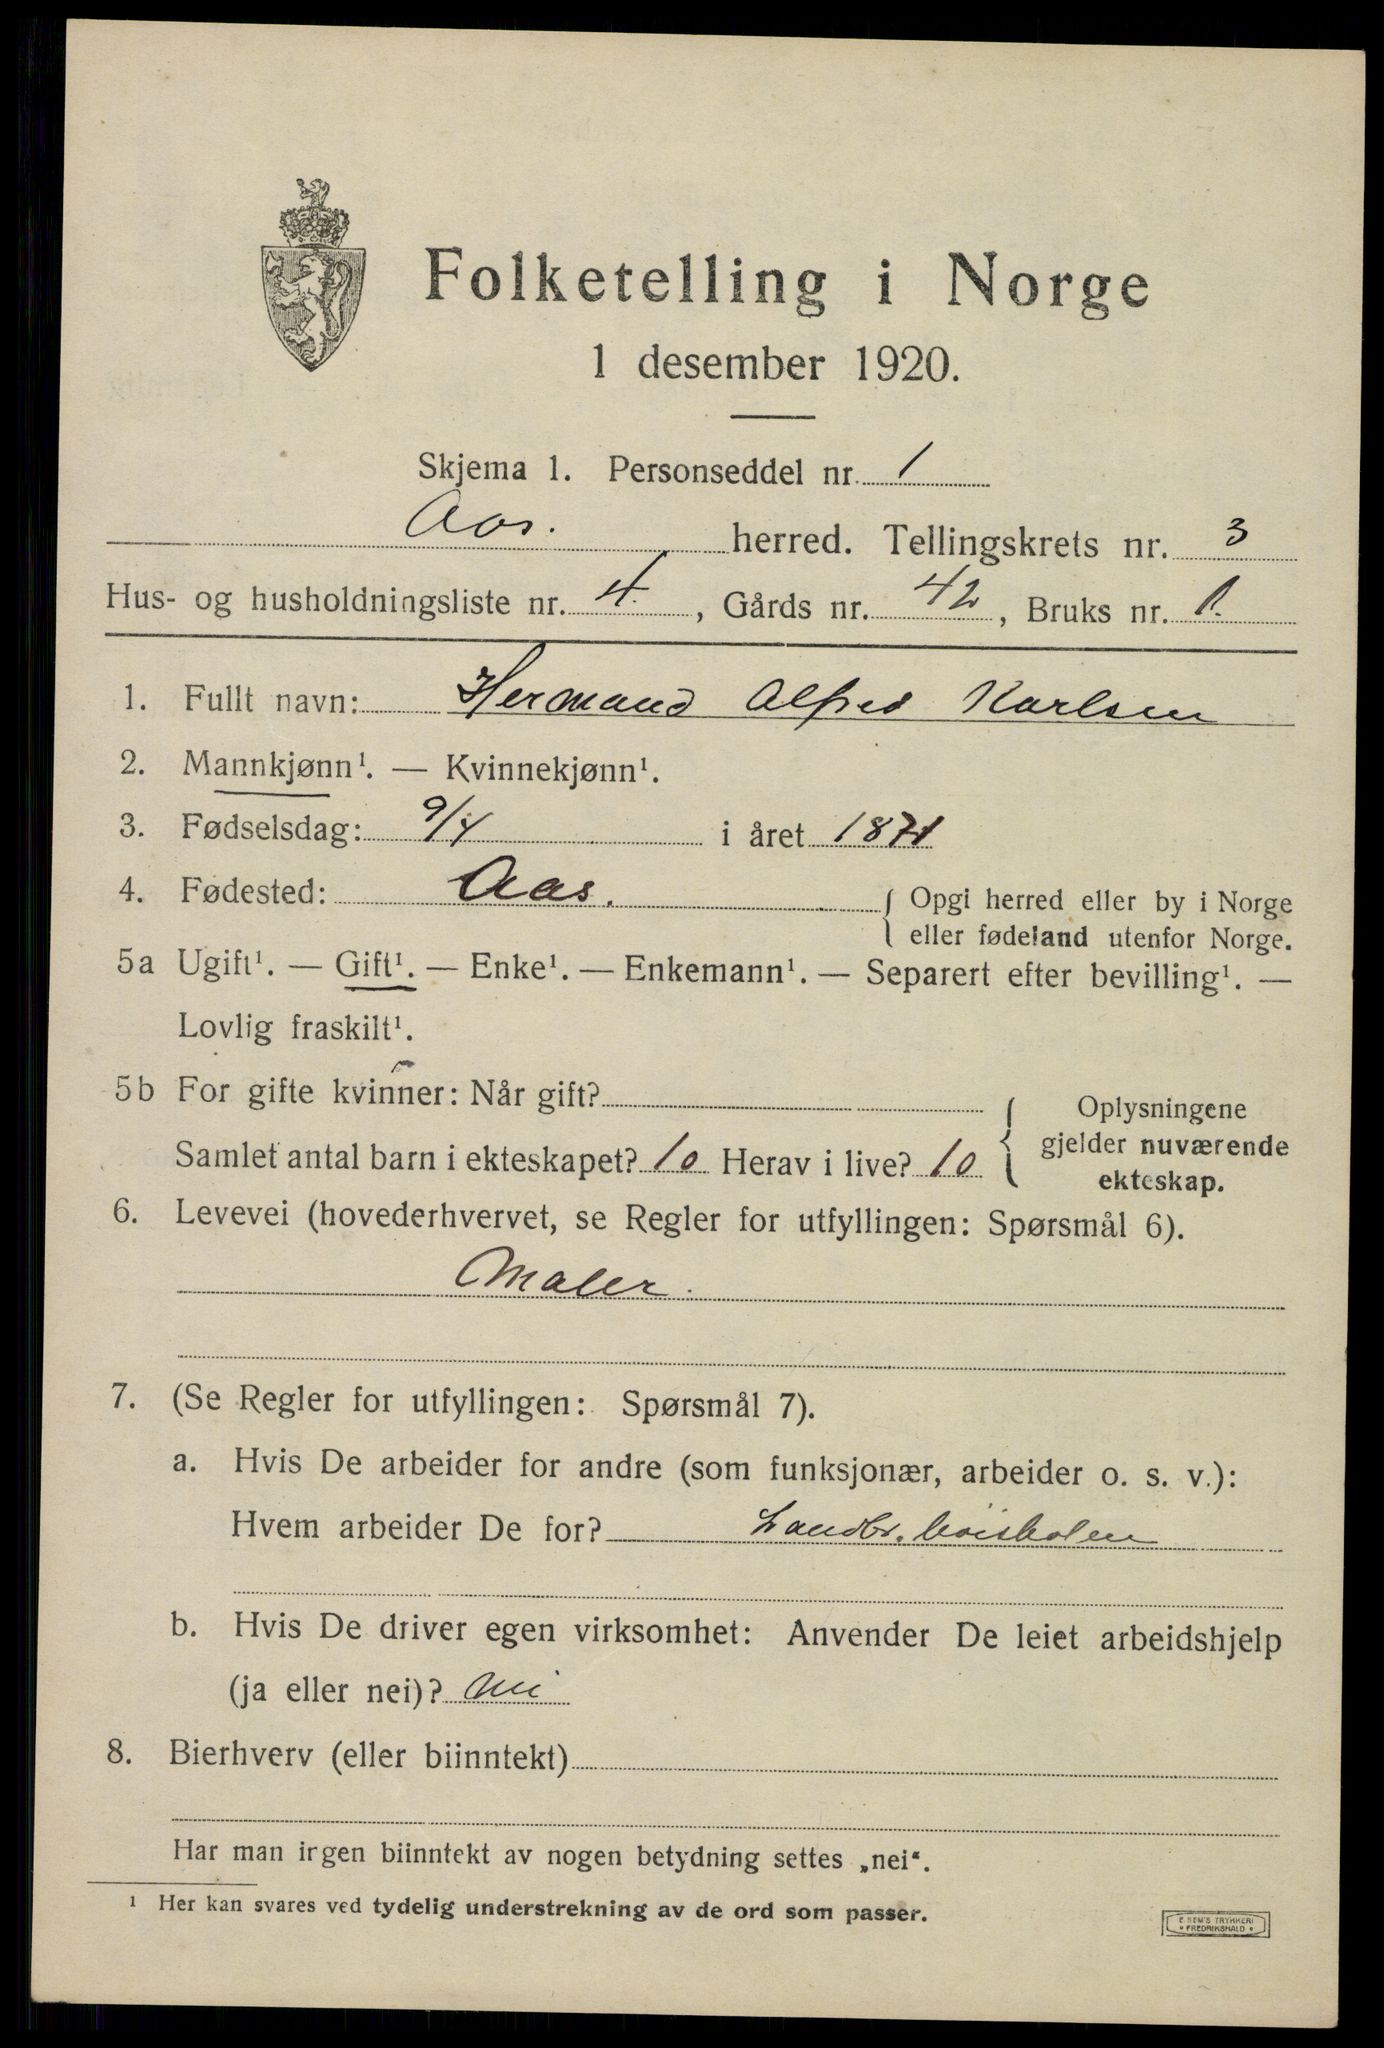 Folketelling i Norge
1 desember 1920.
Skjema 1. Personseddel nr. 1
Aas. herred. Tellingskrets nr. 3
Hus- og husholdningsliste nr. 4. , Gårds nr. 42 , Bruks nr. 1.
1. Fullt navn: Hermand Alfred Karlsen
2. Mannkjønn¹. — Kvinnekjønn¹.
3. Fødselsdag: 9/4 i året 1871
4. Fødested: Aas. { Opgi herred eller by i Norge
eller fødeland utenfor Norge.
5a Ugift¹. — Gift¹. — Enke¹. — Enkemann¹. — Separert efter bevilling¹. —
Lovlig fraskilt¹.
5b For gifte kvinner: Når gift?
Samlet antal barn i ekteskapet? 10 Herav i live? 10
{ Oplysningene
gjelder nuværende
ekteskap.
6. Levevei (hovederhvervet, se Regler for utfyllingen: Spørsmål 6).
Maler.
7. (Se Regler for utfyllingen: Spørsmål 7).
a. Hvis De arbeider for andre (som funksjonær, arbeider o. s. v.):
Hvem arbeider De for? Landbr. høiskolen
b. Hvis De driver egen virksomhet: Anvender De leiet arbeidshjelp
(ja eller nei)? nei
8. Bierhverv (eller biinntekt)
Har man irgen biinntekt av nogen betydning settes „nei“.
¹ Her kan svares ved tydelig understrekning av de ord som passer.
E. SEM'S TRYKKERI
* FREDRIKSHALD *